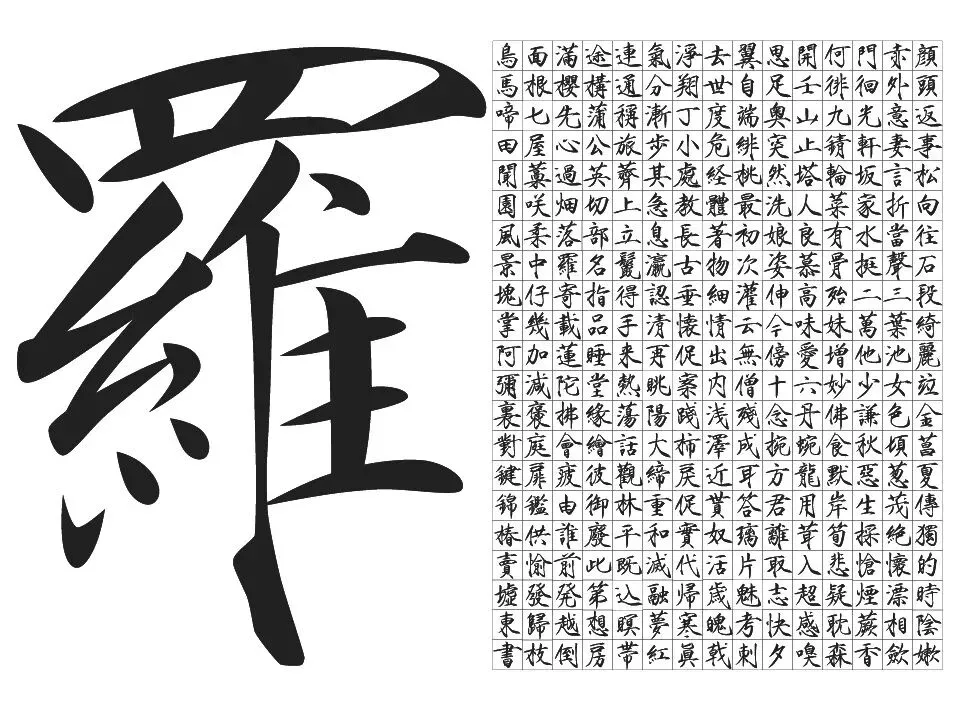 羅
鳥面滿途連氣淨去翼思開何門赤顔
馬根櫻構通分翔世自足壬徘徊外頭
啼七先蒲稱漸丁度端奥山九光意返
田屋心公旅歩小危緋突止錆軒妻事
聞藁過英薺其處経桃然塔輪坂言松
園咲畑切上急教體最洗人菜家折向
風柔落部立息長著初娘良有水當往
景中羅名鬘瀛古物次姿慕骨挺聲石
塊仔寄指得認垂細灌伸高殆二三段
掌幾載品手清懐情云今味妹萬葉綺
阿加蓮睡来再促出無傍愛増他池麗
彌減陀堂熱眺寨内僧十六妙少女竝
裏褒拂縁蕩陽踐浅殘念丹佛謙色金
對庭會繪話大柿澤成捥蜿食秋頃莒
鍵扉疲彼觀締戻近耳方龍默惡葱夏
錦鑑由御林重促貫答君用岸生茂傳
椿供誰廢平和實奴璃離茸筍採絶獨
賣愉前此既滅代活片取入悲愴懷的
墟發発第込融帰歳魅志超疑煙漂時
東歸越想瞑夢寒魄考快感耽蕨相陰
書枝倒房帯紅眞戟刺夕嗅森香歛嫩